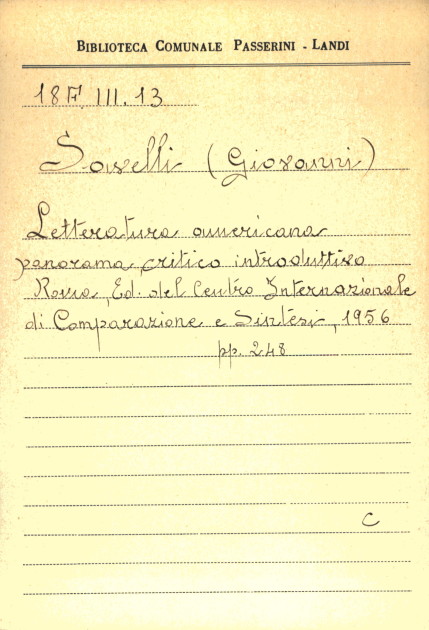 BIBLIOTECA COMUNALE PASSERINI - LANDI
18F. III. 13
Savelli (Giovanni)
Letteratura americana
panorama critico introduttivo
Roma, Ed. del Centro Internazionale
di Comparazione e Sintesi, 1956
pp. 248
C